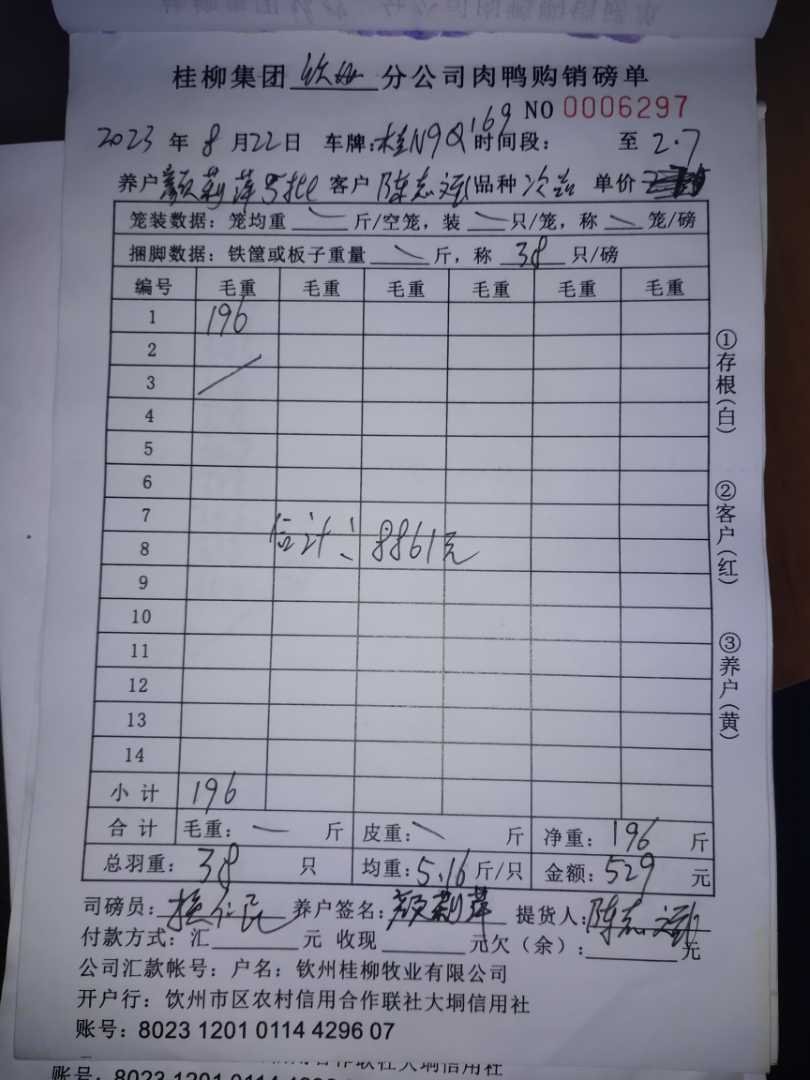 桂柳集团 钦州 分公司肉鸭购销磅单
NO 0006297
2023 年 8 月 22 日 车牌:桂N9Q169 时间段: 至 2.7
养户 颜莉萍 5批 客户 陈志 品种 单价
笼装数据:笼均重 斤/空笼,装 只/笼,称 笼/磅
捆脚数据:铁筐或板子重量 斤,称 38 只/磅
编号 毛重 毛重 毛重 毛重 毛重 毛重
1 196
2
3
4
5
6
7
8
合计:8861元
9
10
11
12
13
14
小计 196
合计 毛重: 斤 皮重: 斤 净重:196 斤
总羽重:38 只 均重:5.16 斤/只 金额:529 元
司磅员: 养户签名:颜莉萍 提货人:陈志
付款方式:汇 元 收现 元欠(余): 元
公司汇款帐号:户名:钦州桂柳牧业有限公司
开户行:饮州市区农村信用合作联社大垌信用社
账号:8023 1201 0114 4296 07
①存根(白)
②客户(红)
③养户(黄)